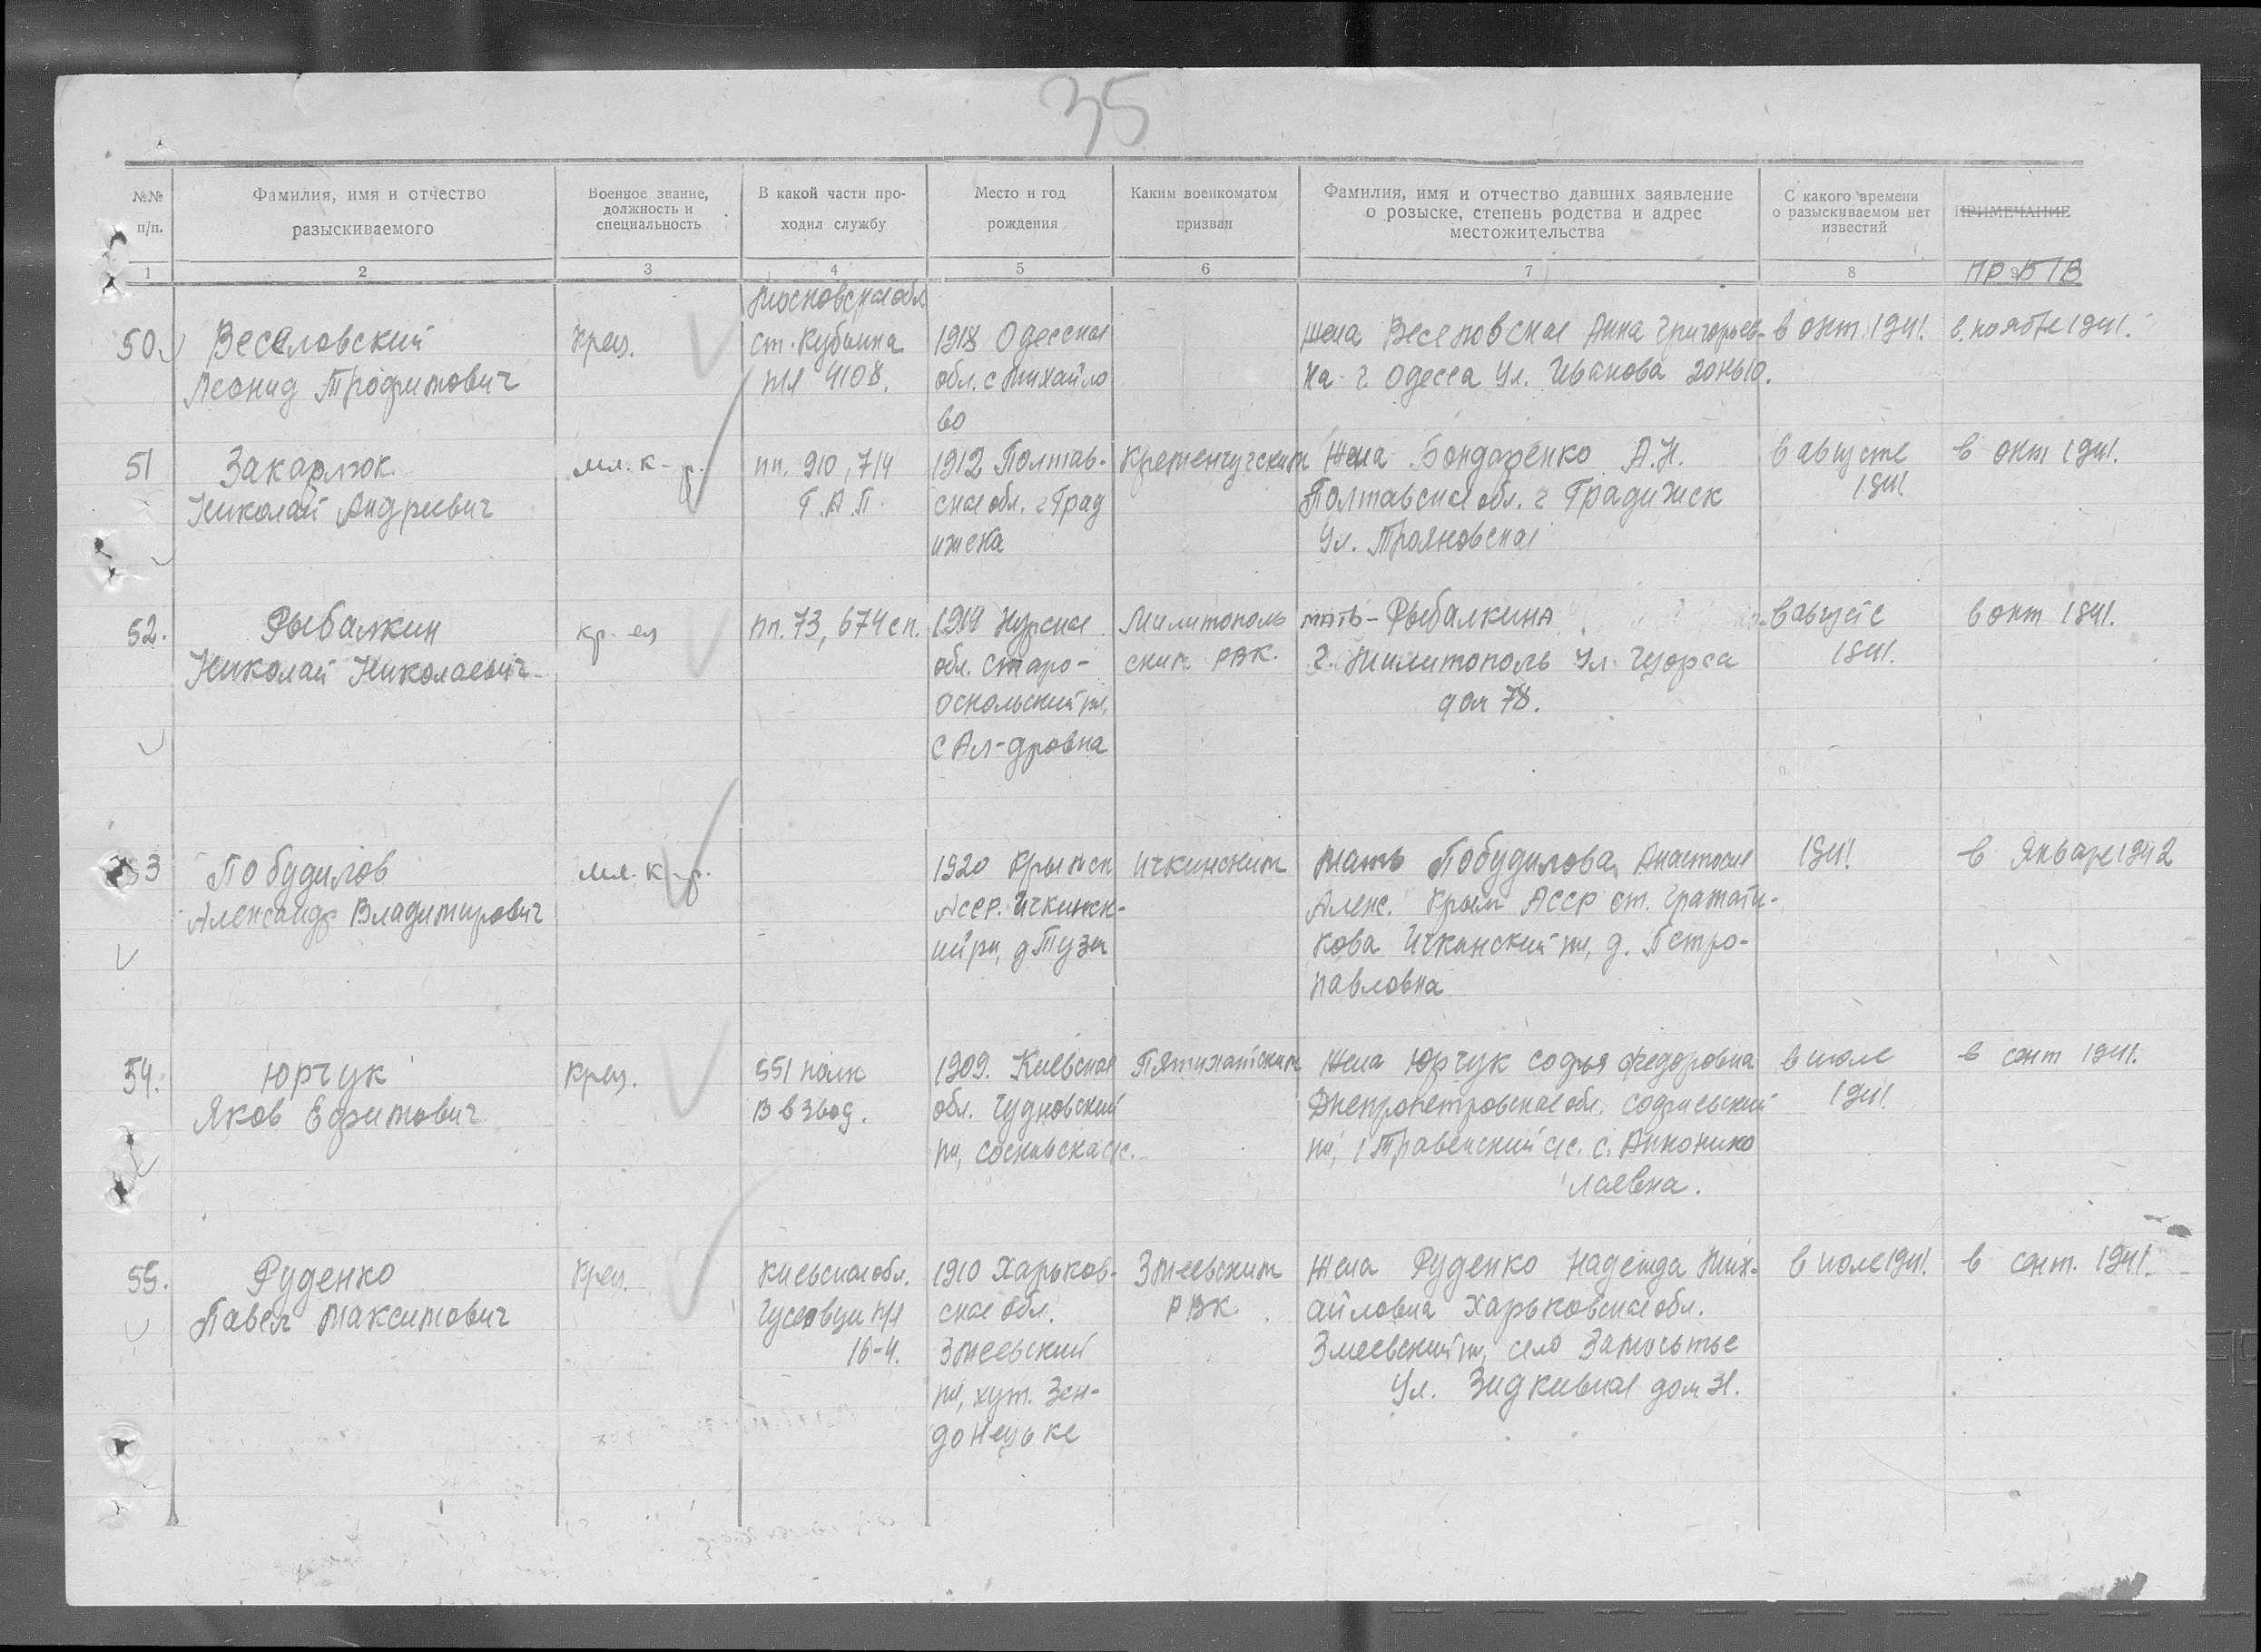 35
№№ п/п.
Фамилия, имя и отчество разыскиваемого
Военное звание, должность и специальность
В какой части проходил службу
Место и год рождения
Каким военкоматом призван
Фамилия, имя и отчество давших заявление о розыске, степень родства и адрес местожительства
С какого времени о разыскиваемом нет известий
ПРИМЕЧАНИЕ
1 2 3 4 5 6 7 8
ПР Б/В
50.
Веселовский
Леонид Трофимович
Крец.
Московская обл
ст. Кубинка
п/я 4108.
1918 Одесская
обл. с Михайло
во
жена Веселовская Анна Григорьев-
на г. Одесса ул. Иванова 20 кв 10.
в окт. 1941.
в. ноябре 1941.
51
Закарлюк
Николай Андреевич
мл. к-р.
пп. 910, 714
Г.А.П.
1912 Полтав-
ская обл. г Град
ижска
Кременчугским
Жена Бондаренко А.Н.
Полтавская обл. г Градижск
ул. Трояновская
в августе
1941.
в окт 1941.
52.
Рыбалкин
Николай Николаевич
кр-ец
пп. 73, 674 сп.
1919 Курская
обл. Старо-
оскольский рн,
с Ал-дровка
Милитополь
ским РВК.
мать - Рыбалкина
г. Милитополь ул. Щорса
дом 78.
в август е
1941.
в окт 1941.
53
Побудилов
Александр Владимирович
мл. к-р.
1920 Крымск
АССР. Ичкинск-
ий рн, д Тузла
Ичкинским
Мать Побудилова Анастасия
Алекс. Крым АССР ст. Граммати-
кова Ичкинский рн, д. Петро-
павловка
1941
в Январе 1942
54.
Юрчук
Яков Ефимович
Крец.
551 полк
В взвод.
1909. Киевская
обл. Чудновский
рн, Сосновска с/с.
Пятихатским
Жена Юрчук Софья Федоровна
Днепропетровская обл. Софиевский
рн, 1 Травенский с/с. с. Аннонико
лаевка.
в июле
1941.
в сент 1941.
55.
Руденко
Павел Максимович
Крец.
Киевская обл.
Гусовци п/я
16-4.
1910 Харьков-
ская обл.
Змеевский
рн, хут. Зен-
донецьке
Змеевским
РВК.
Жена Руденко Надежда Мих-
айловна Харьковская обл.
Змеевский рн, село Замостье
Ул. Зидкивная дом 31.
в июле 1941.
в сент. 1941.